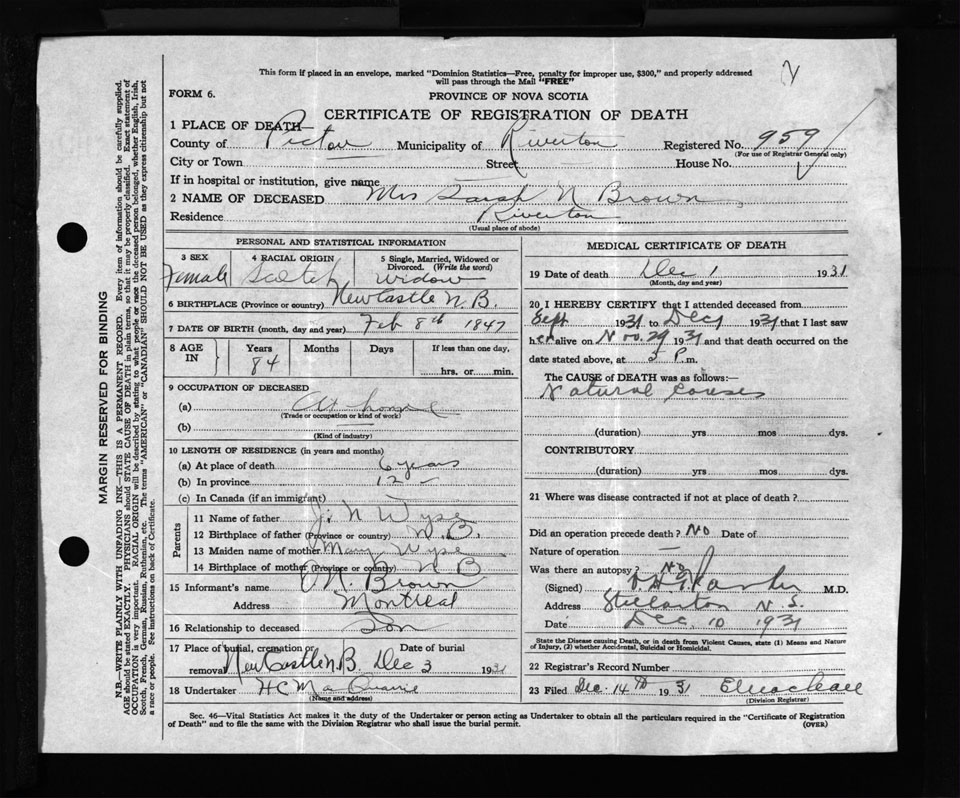 2
This form if placed in an envelope, marked "Dominion Statistics—Free, penalty for improper use, $300," and properly addressed
will pass through the Mail "FREE"
FORM 6.
PROVINCE OF NOVA SCOTIA
CERTIFICATE OF REGISTRATION OF DEATH
1 PLACE OF DEATH—
County of Pictou Municipality of Riverton Registered No. 959
(For use of Registrar General only)
City or Town Street House No.
If in hospital or institution, give name
2 NAME OF DECEASED Mrs Sarah N Brown
Residence Riverton
(Usual place of abode)
PERSONAL AND STATISTICAL INFORMATION
3 SEX 4 RACIAL ORIGIN 5 Single, Married, Widowed or
Divorced. (Write the word)
Female Scotch Widow
6 BIRTHPLACE (Province or country) Newcastle N.B.
7 DATE OF BIRTH (month, day and year) Feb 8th 1847
8 AGE IN Years Months Days If less than one day,
84 hrs. or min.
9 OCCUPATION OF DECEASED
(a) At home
(Trade or occupation or kind of work)
(b)
(Kind of industry)
10 LENGTH OF RESIDENCE (in years and months)
(a) At place of death 6 years
(b) In province 12 –
(c) In Canada (if an immigrant)
Parents
11 Name of father J. N Wyse
12 Birthplace of father (Province or country) N.B.
13 Maiden name of mother Mary Wyse
14 Birthplace of mother (Province or country) N B
15 Informant's name N. Brown
Address Montreal
16 Relationship to deceased Son
17 Place of burial, cremation or Date of burial
removal NewCastle N.B. Dec 3 1931
18 Undertaker H C MacQuarrie
(Name and address)
MEDICAL CERTIFICATE OF DEATH
19 Date of death Dec 1 1931
(Month, day and year)
20 I HEREBY CERTIFY that I attended deceased from
Sept 1931 to Dec 1 1931 that I last saw
her alive on Nov. 29 1931 and that death occurred on the
date stated above, at 5 P. m.
The CAUSE of DEATH was as follows:—
Natural Causes
(duration) yrs mos dys.
CONTRIBUTORY
(duration) yrs mos dys.
21 Where was disease contracted if not at place of death?
Did an operation precede death? No Date of
Nature of operation —
Was there an autopsy? No
(Signed) M.D.
Address Stellarton N.S.
Date Dec. 10 1931
State the Disease causing Death, or in death from Violent Causes, state (1) Means and Nature
of Injury, (2) whether Accidental, Suicidal or Homicidal.
22 Registrar's Record Number
23 Filed Dec. 14th 1931
(Division Registrar)
Sec. 46—Vital Statistics Act makes it the duty of the Undertaker or person acting as Undertaker to obtain all the particulars required in the "Certificate of Registration
of Death" and to file the same with the Division Registrar who shall issue the burial permit. (OVER)
MARGIN RESERVED FOR BINDING
N.B.—WRITE PLAINLY WITH UNFADING INK—THIS IS A PERMANENT RECORD. Every item of information should be carefully supplied.
AGE should be stated EXACTLY. PHYSICIANS should STATE CAUSE OF DEATH in plain terms, so that it may be properly classified. Exact statement of
OCCUPATION is very important. RACIAL ORIGIN will be described by stating to what people or race the deceased person belonged, whether English, Irish,
Scotch, French, German, Russian, Ruthenian, etc. The terms "AMERICAN" or "CANADIAN" SHOULD NOT BE USED as they express citizenship but not
a race or people. See instructions on back of Certificate.